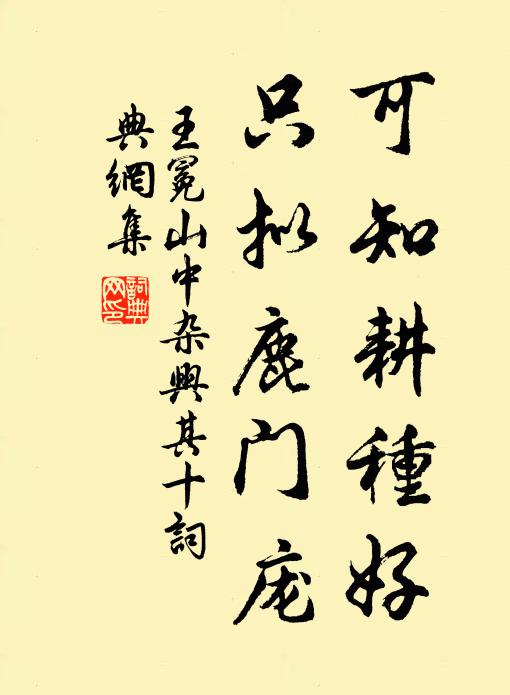 可知耕種好
只拟鹿门庞
王冕山中杂興其十詞
典網集
詞典
网印